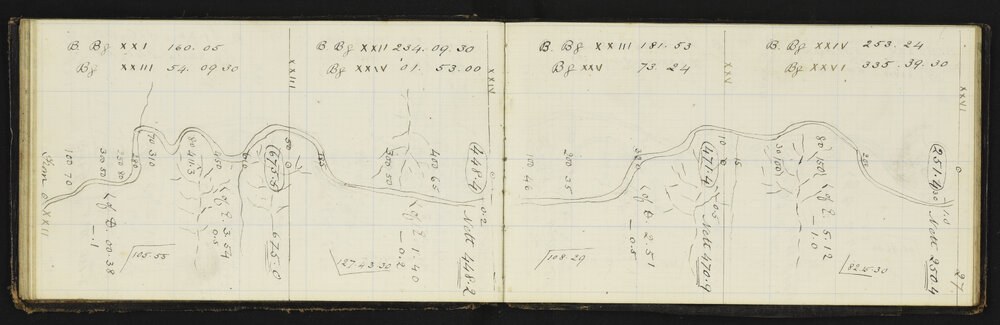 B. Bg XXI 160.05
Bg XXIII 54.09.30
XXIII
B Bg XXII 234.09.30
Bg XXIV 01.53.00
XXIV
B. Bg XXIII 181.53
Bg XXV 73.24
XXV
B Bg XXIV 253.24
Bg XXVI 335.39.30
XXVI
From 0 XXII
100 70
300 50
250
280
70 310
80 413
450
510
50 0
673.5
675.0
∠ of E. 00.38
-.1
105.55
∠ of E 3.54
-0.5
300 50
400 65
448.4
0.2
Nett 448.2
∠ of E 1.40
-0.2
127.43.30
100 46
200 35
300
10 0
15
471.4
0.5
Nett 470.9
∠ of E. 2.51
-0.5
108.29
30 100
80 160
∠ of E. 5.12
-1.0
82.15.30
251.4
0
1.0
Nett 250.4
27.